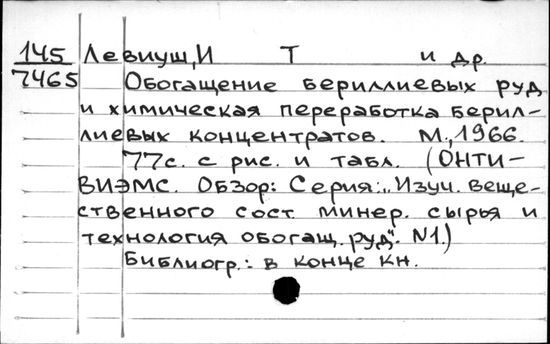 145 Левиуш, И Т и др.
7465 Обогащение бериллиевых руд
и химическая переработка берил-
лиевых концентратов. М., 1966.
77с. с рис. и табл. (ОНТИ-
ВИЭМС. Обзор: Серия: „Изуч. веще-
ственного сост. минер. сырья и
технология обогащ. руд". N1.)
Библиогр.: в конце кн.